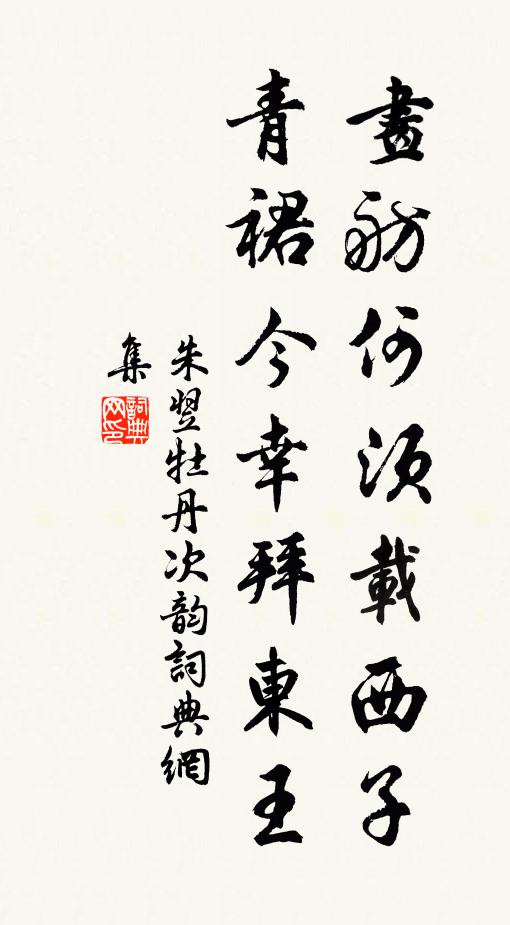 畫舫何須載西子
青裙今幸拜東王
朱翌牡丹次韵詞典網
集
詞典
网印